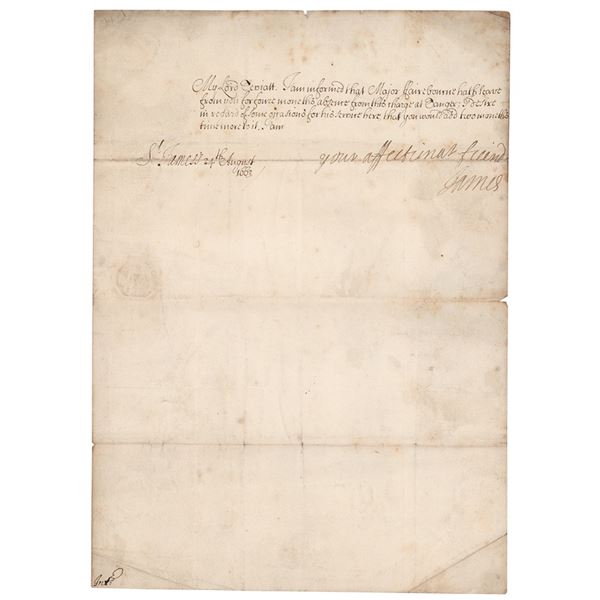 My Lord Teviatt. I am informed that Major ffairebourne hath leave
from you for foure moneths absence from this charge at Tanger; I desire
in regard of some occasions for his service here, that you would add two moneths
time more to it. I am
your affectionat freind
James
St James's 24th August
1663